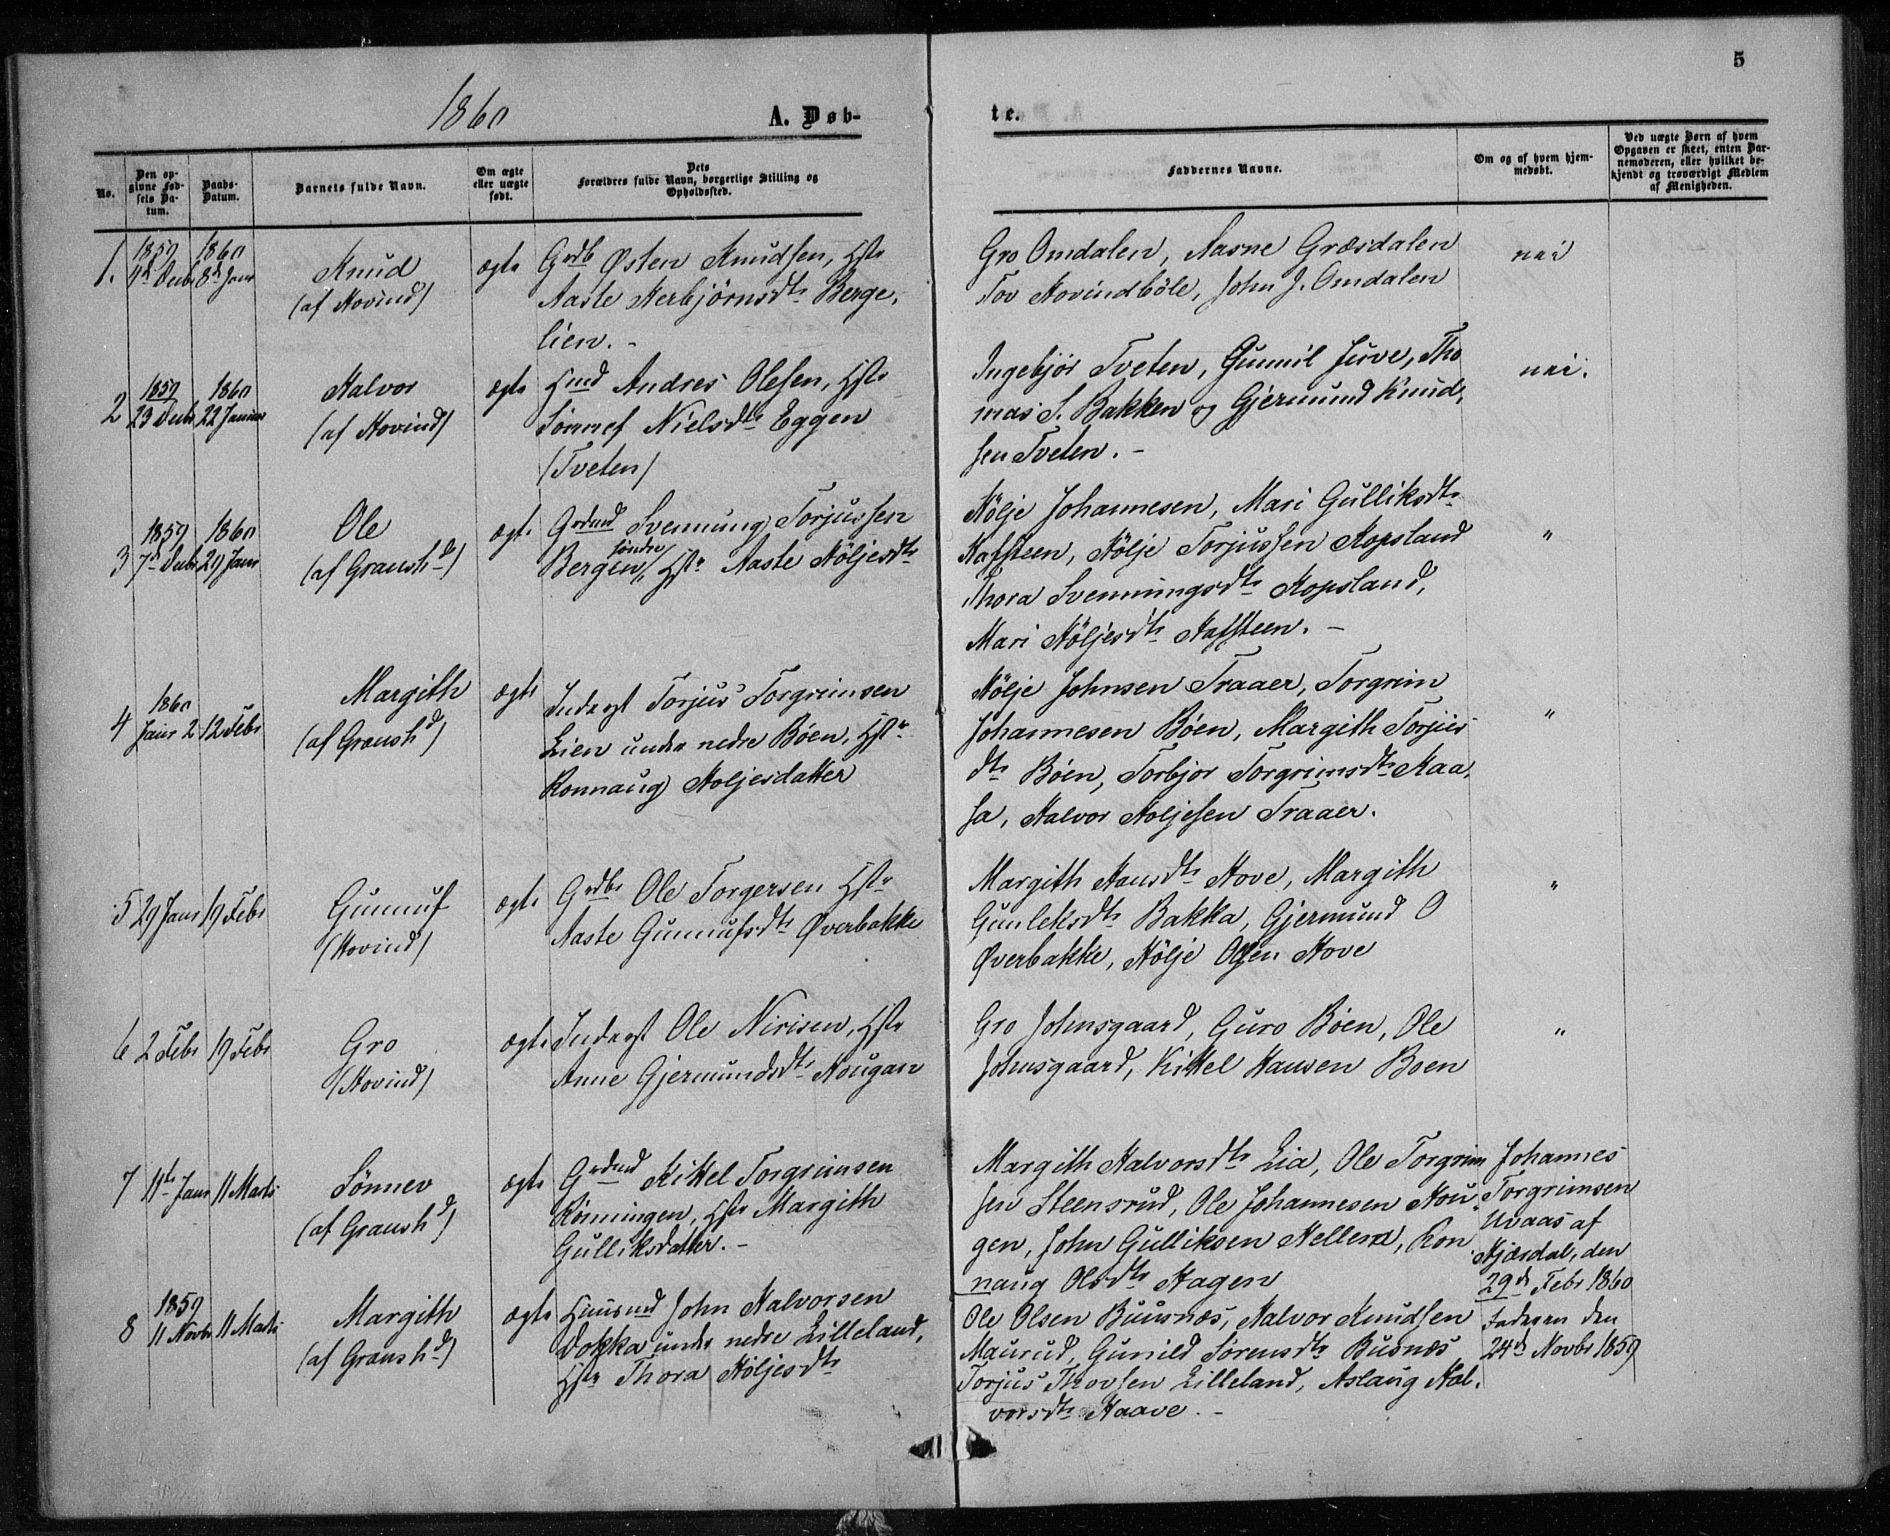 5
1860
A. Døb-
te.
No.
Den op-
givne Fød-
sels Da-
tum.
Daabs-
Datum.
Barnets fulde Navn.
Om ægte
eller uægte
født.
Dets
Forældres fulde Navn, borgerlige Stilling og
Opholdssted.
Faddernes Navne.
Om og af hvem hjem-
medøbt.
Ved uægte Børn af hvem
Opgaven er skeet, enten Bar-
nemoderen, eller hvilket be-
kjendt og troværdigt Medlem
af Menigheden.
1.
1859
Decbr
1860
8de Janr
Knud
(af Hovind)
ægte
Grdbr Østen Knudsen, Hstr
Aaste Herbjørnsdtr Berge,
lien. -
Gro Omdalen, Aasne Græsdalen
Tov Hovindbøle, John J. Omdalen
nei
2
1859
23 Decbr
1860
22 Januar
Halvor
(af Hovind)
ægte
Hmd Andres Olesen, Hstr
Sønnef Nielsdtr Eggen
(Tveten)
Ingebjør Tveten, Gunnil Juve, Tho
mas S. Bakken og Gjermund Knud,
sen Tveten. -
nei.
3
1859
7de Decbr
1860
29 Janr
Ole
(af Granshd)
ægte
Grdmd Svennung Torjussen
Bergen søndre, Hstr Aaste Høljesdtr
Hølje Johannesen, Mari Gulliksdtr
Haffteen, Hølje Torjussen Kopsland
Thora Svenningsdtr Kopsland,
Mari Høljesdtr Haffteen. -
"
4
1860
Janr 2
12 Febr
Margith
(af Granshd)
ægte
Inderst Torjus Torgrimsen
Lien under nedre Bøen, Hstr
Ronnaug Holjesdatter
Hølje Johnsen Traaer, Torgrim
Johannesen Bøen, Margith Torjus
dtr Bøen, Torbjor Torgrimsdtr Kaa,
sa, Halvor Holjesen Traaer.
"
5
29 Janr
19 Febr
Gunnuf
(Hovind)
ægte
Grdbr Ole Torgersen Hstr
Aaste Gunnufsdtr Øverbakke
Margith Hansdtr Hove, Margith
Gunleksdtr Bakka, Gjermund O
Øverbakke, Hølje Olsen Hove
"
6
2 Febr
19 Febr
Gro
(Hovind)
ægte
Inderst Ole Nirisen, Hstr
Anne Gjermundsdtr Hougan
Gro Johnsgaard, Guro Bøen, Ole
Johnsgaard, Kittel Hansen Boen
"
7
11te Janr
11 Marts
Sønnev
(af Granshd)
ægte
Grdmd Kittel Torgrimsen
Rønningen, Hstr Margith
Gulliksdatter. -
Margith Halvorsdtr Lia, Ole Torgrim
sen Steensrud, Ole Johannesen Hou,
gen, John Gulliksen Hellera, Ron
naug Olsdtr Hagen
Johannes
Torgrimsen
Uvaas af
Hjærdal, den
29de Febr 1860
8
1859
11 Novbr
11 Marts
Margith
(af Granshd)
ægte
Huusmd John Halvorsen
Dokka under nedre Lilleland,
Hstr Thora Høljesdtr
Ole Olsen Buusnæs, Halvor Knudsen
Maurud, Gunild Sørensdtr Busnæs
Torjus Thovsen Lilleland, Aslaug Hal,
vorsdtr Haave. -
Faderen den
24de Novbr 1859